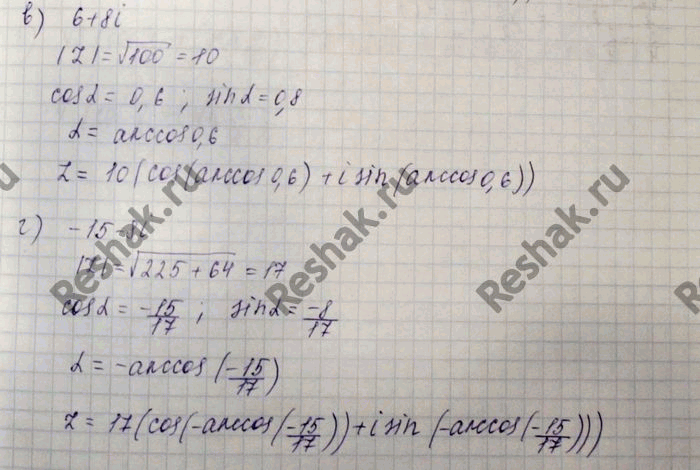 в) 6+8i
|Z|=√100=10
cosα=0,6; sinα=0,8
α=arccos0,6
Z=10(cos(arccos0,6)+i sin(arccos0,6))
г) -15-8i
|Z|=√225+64=17
cosα=-15/17; sinα=-8/17
α=-arccos(-15/17)
Z=17(cos(-arccos(-15/17))+i sin(-arccos(-15/17)))
Reshak.ru
Reshak.ru
Reshak.ru